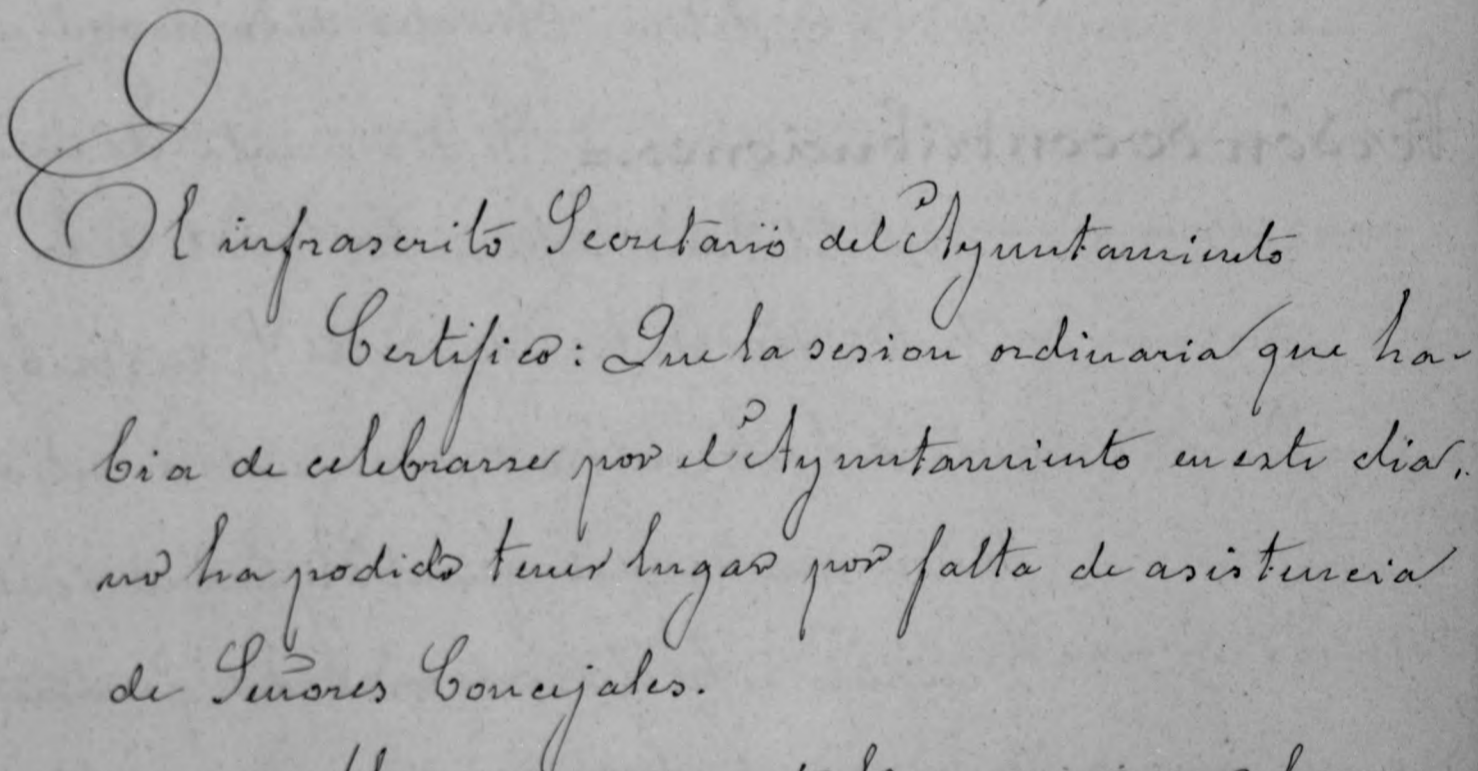 El infrascrito Secretario del Ayuntamiento
Certifico: Que la sesion ordinaria que ha-
bia de celebrarse por el Ayuntamiento en este dia,
no ha podido tener lugar por falta de asistencia
de Señores Concejales.